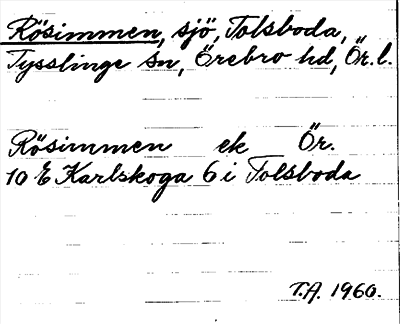 Rösimmen, sjö, Tolsboda,
Tysslinge sn, Örebro hd, Ör. l.
Rösimmen ek Ör.
10 E Karlskoga 6 i Tolsboda
T.A. 1960.